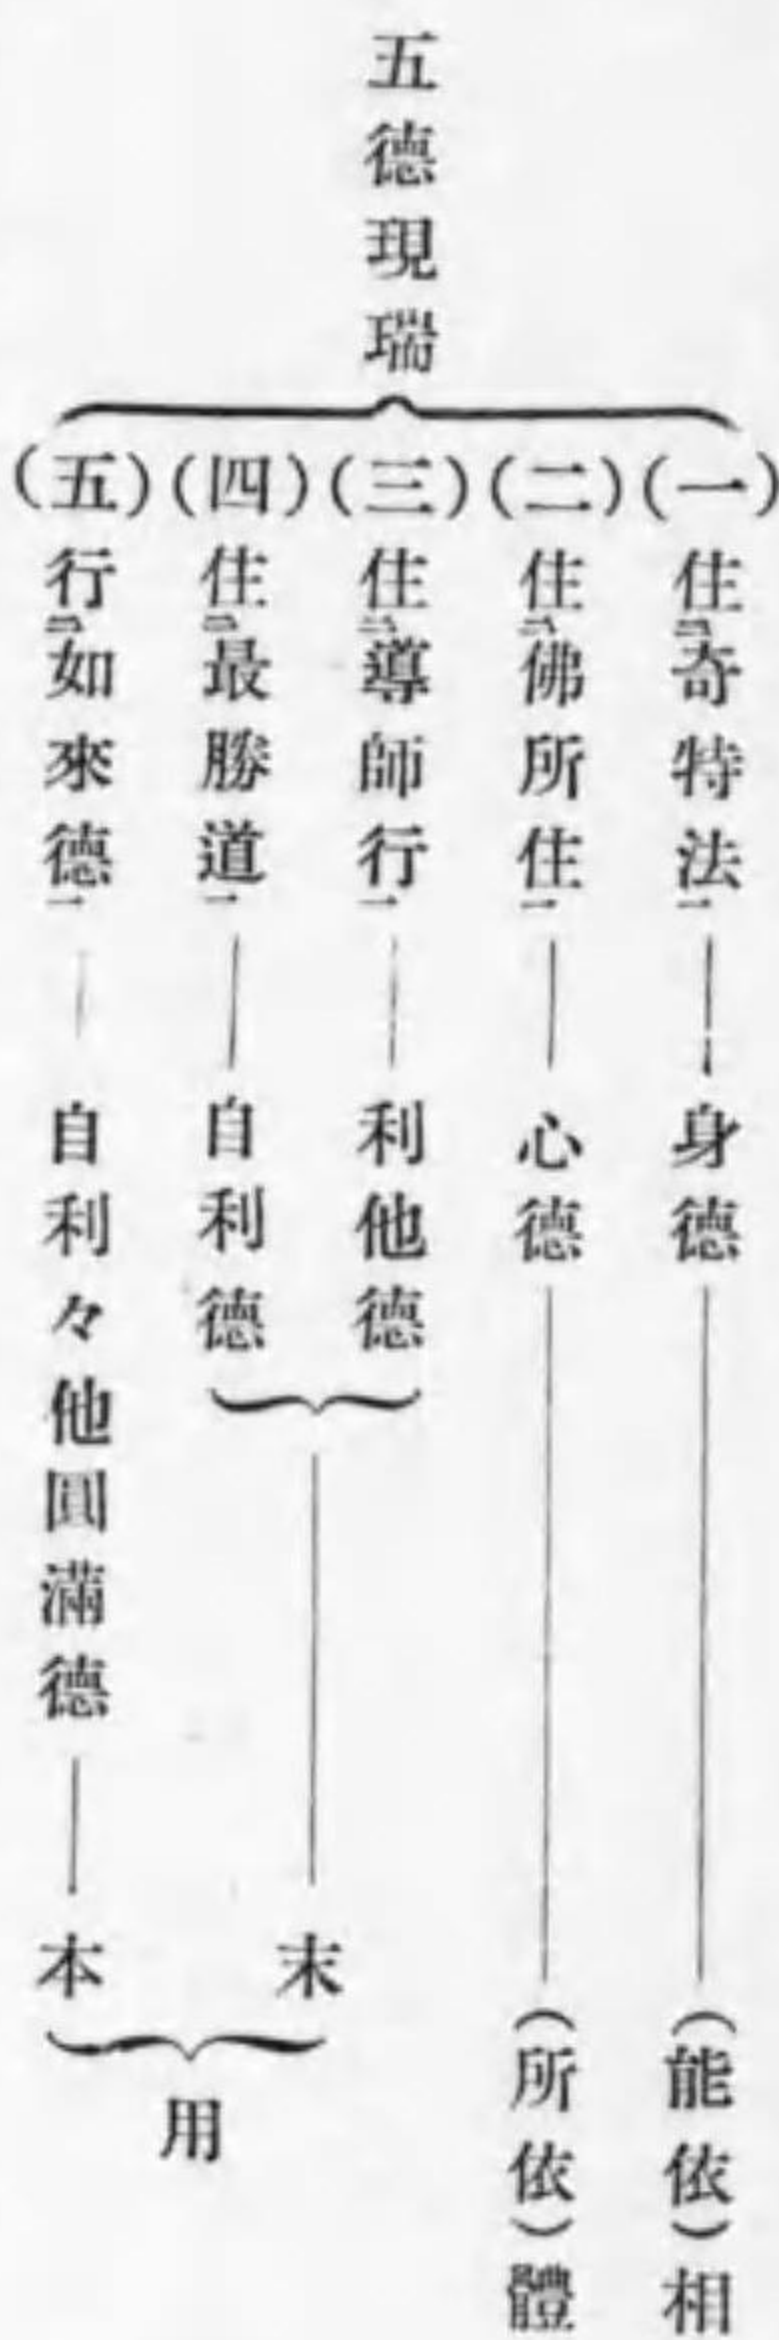 五德現瑞
(一)住二奇特法一——身德——(能依)相
(二)住二佛所住一——心德——(所依)體
(三)住二導師行一——利他德
(四)住二最勝道一——自利德
末
(五)行二如來德一——自利々他圓滿德——本
用